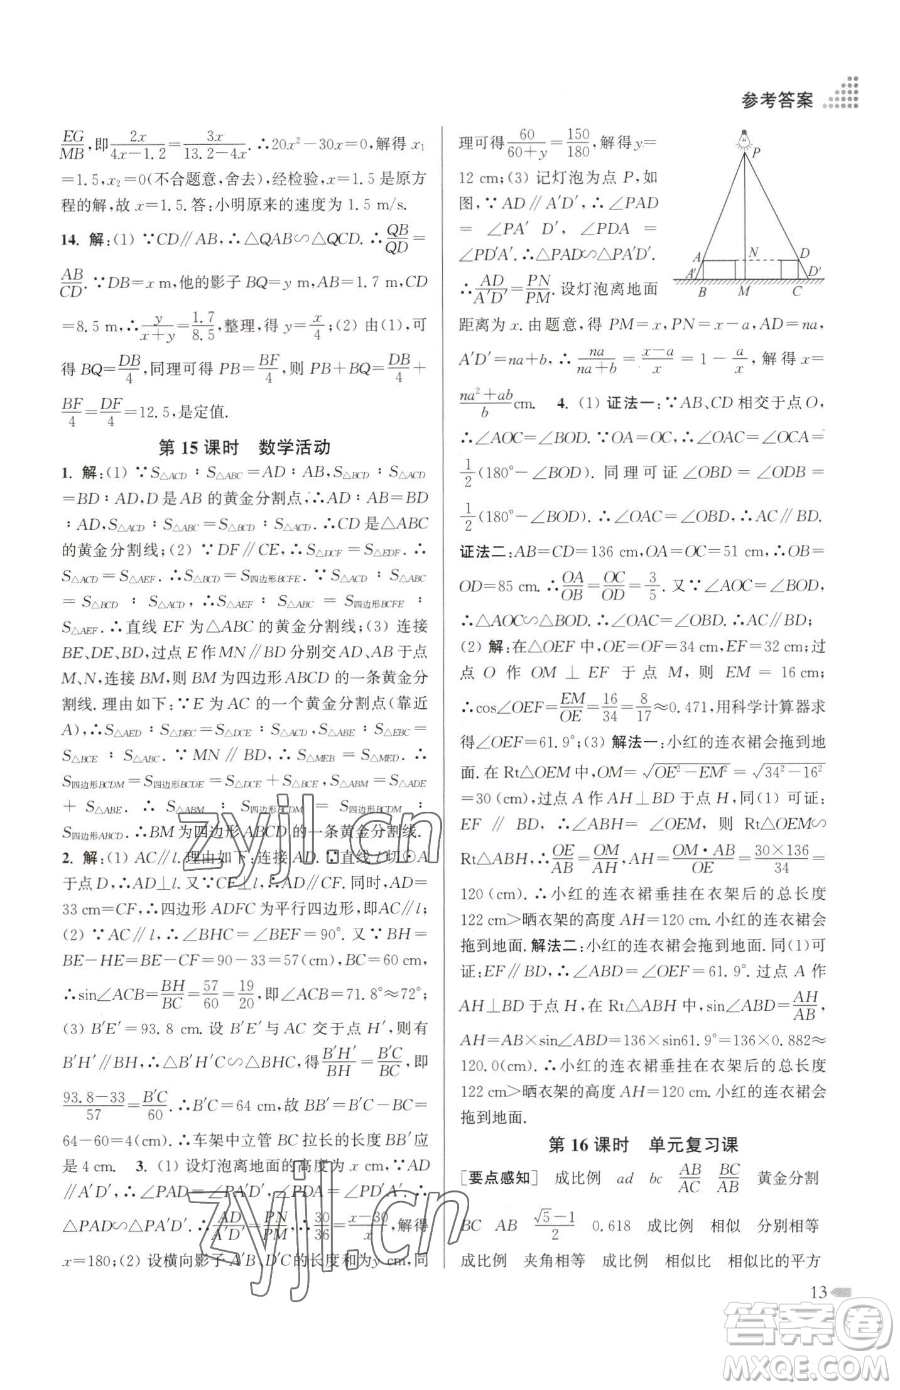 参考答案
EG/MB,即2x/(4x-1.2)=3x/(13.2-4x).∴20x²-30x=0,解得 x₁
=1.5,x₂=0(不合题意,舍去),经检验,x=1.5 是原方
程的解,故 x=1.5.答:小明原来的速度为 1.5 m/s.
14. 解:(1) ∵CD∥AB,∴△QAB∽△QCD.∴QB/QD=
AB/CD.∵DB=x m,他的影子 BQ=y m,AB=1.7 m,CD
=8.5 m,∴y/(x+y)=1.7/8.5,整理,得 y=x/4;(2) 由(1),可
得 BQ=DB/4,同理可得 PB=BF/4,则 PB+BQ=DB/4+
BF/4=DF/4=12.5,是定值.
第 15 课时 数学活动
1. 解:(1) ∵S△ACD∶S△ABC=AD∶AB,S△BCD∶S△ACD
=BD∶AD,D 是 AB 的黄金分割点,∴AD∶AB=BD
∶AD,S△ACD∶S△ABC=S△BCD∶S△ACD.∴CD 是△ABC
的黄金分割线;(2) ∵DF∥CE,∴S△DCF=S△DEF.∴
S△ACD=S△AEF.∴S△BCD=S四边形BCFE.∵S△ACD∶
S△ABC=S△BCD∶S△ACD,∴S△AEF∶S△ABC=S四边形BCFE∶
S△AEF.∴直线 EF 为△ABC 的黄金分割线;(3) 连接
BE,DE,BD,过点 E 作 MN∥BD,分别交 AB,CD 于点
M,N,连接 BM,则 BM 为四边形 ABCD 的一条黄金分
割线.理由如下:∵E 为 AC 的一个黄金分割点(靠近
A),∴S△AED∶S△DEC=S△DEC∶S△ADC,S△ABE∶S△BCE=
S△BCE∶S△ABC.∵MN∥BD,∴S△MEB=S△MED.∴
S四边形BCDM=S四边形BCDE=S△DCE+S△BCE,S△ABM=S△ADE
+S△ABE.∴S△ABM∶S四边形BCDM=S四边形BCDM∶
S四边形ABCD.∴BM 为四边形 ABCD 的一条黄金分割线.
2. 解:(1) AC∥l.理由如下:连接 AD.∵直线 l 切⊙A
于点 D,∴AD⊥l.同理,CF⊥l.∴AD∥CF.同时,AD=
33 cm=CF,∴四边形 ADFC 为平行四边形,即AC∥l;
(2) ∵AC∥l,∴∠BHC=∠BEF=90°.又∵BH=
BE-HE=BE-CF=90-33=57(cm),BC=60 cm,
∴sin∠ACB=BH/BC=57/60=19/20,∴∠ACB=71.8°≈72°;
(3) B′E′=93.8 cm.设 B′E′与 AC 交于点 H′,则有
B′H′∥BH,∴△B′H′C∽△BHC,得B′H′/BH=B′C/BC,即
(93.8-33)/57=B′C/60.∴B′C=64 cm,故 BB′=B′C-BC=
64-60=4(cm).∴车架中立管 BC 拉长的长度 BB′应
是 4 cm. 3. (1) 设灯泡离地面的高度为 x cm.∵AD
∥A′D′,∴∠PAD=∠PA′D′,∠PDA=∠PD′A′.∴
△PAD∽△PA′D′.∴AD/A′D′=PN/PM.∴30/36=(x-30)/x,解得
x=180;(2) 设横向影子 A′B,D′C 的长度和为y cm,同
理可得60/(60+y)=150/180,解得y=
12 cm;(3) 记灯泡为点 P,如
图,∵AD∥A′D′,∴∠PAD
=∠PA′D′,∠PDA=
∠PD′A′.∴△PAD∽△PA′D′.
∴AD/A′D′=PN/PM.设灯泡离地面
距离为x.由题意,得 PM=x,PN=x-a,AD=na,
A′D′=na+b,∴na/(na+b)=(x-a)/x=1-a/x.解得x=
(na²+ab)/b cm. 4. (1) 证法一:∵AB、CD 相交于点 O,
∴∠AOC=∠BOD.∵OA=OC,∴∠OAC=∠OCA=
1/2(180°-∠BOD).同理可证∠OBD=∠ODB=
1/2(180°-∠BOD).∴∠OAC=∠OBD,∴AC∥BD.
证法二:AB=CD=136 cm,OA=OC=51 cm,∴OB=
OD=85 cm.∴OA/OB=OC/OD=3/5.又∵∠AOC=∠BOD,
∴△AOC∽△BOD.∴∠OAC=∠OBD.∴AC∥BD;
(2) 解:在△OEF 中,OE=OF=34 cm,EF=32 cm;过
点 O 作 OM⊥EF 于点 M,则 EM=16 cm,
∴cos∠OEF=EM/OE=16/34=8/17≈0.471,用科学计算器求
得∠OEF=61.9°;(3) 解法一:小红的连衣裙会拖到地
面.在 Rt△OEM 中,OM=√(OE²-EM²)=√(34²-16²)
=30(cm),过点 A 作 AH⊥BD 于点 H,同(1) 可证:
EF∥BD,∴∠ABH=∠OEM,则 Rt△OEM∽
Rt△ABH,∴OE/AB=OM/AH,AH=OM·AB/OE=30×136/34=
120(cm).∴小红的连衣裙垂挂在衣架后的总长度
122 cm>晒衣架的高度 AH=120 cm.小红的连衣裙会
拖到地面.解法二:小红的连衣裙会拖到地面.同(1)可
证:EF∥BD,∴∠ABD=∠OEF=61.9°.过点 A 作
AH⊥BD 于点 H,在 Rt△ABH 中,sin∠ABD=AH/AB,
AH=AB×sin∠ABD=136×sin61.9°=136×0.882≈
120.0(cm).∴小红的连衣裙垂挂在衣架后的总长度
122 cm>晒衣架的高度 AH=120 cm.小红的连衣裙会
拖到地面.
第 16 课时 单元复习课
[要点感知] 成比例 ad bc AB/AC BC/AB 黄金分割
BC AB (√5-1)/2 0.618 成比例 相似 分别相等
成比例 夹角相等 成比例 相似比 相似比的平方
P
A
N
D
B
M
C
D′
13
zyjl.cn
zyjl.cn
答案圈
MXQE.COM